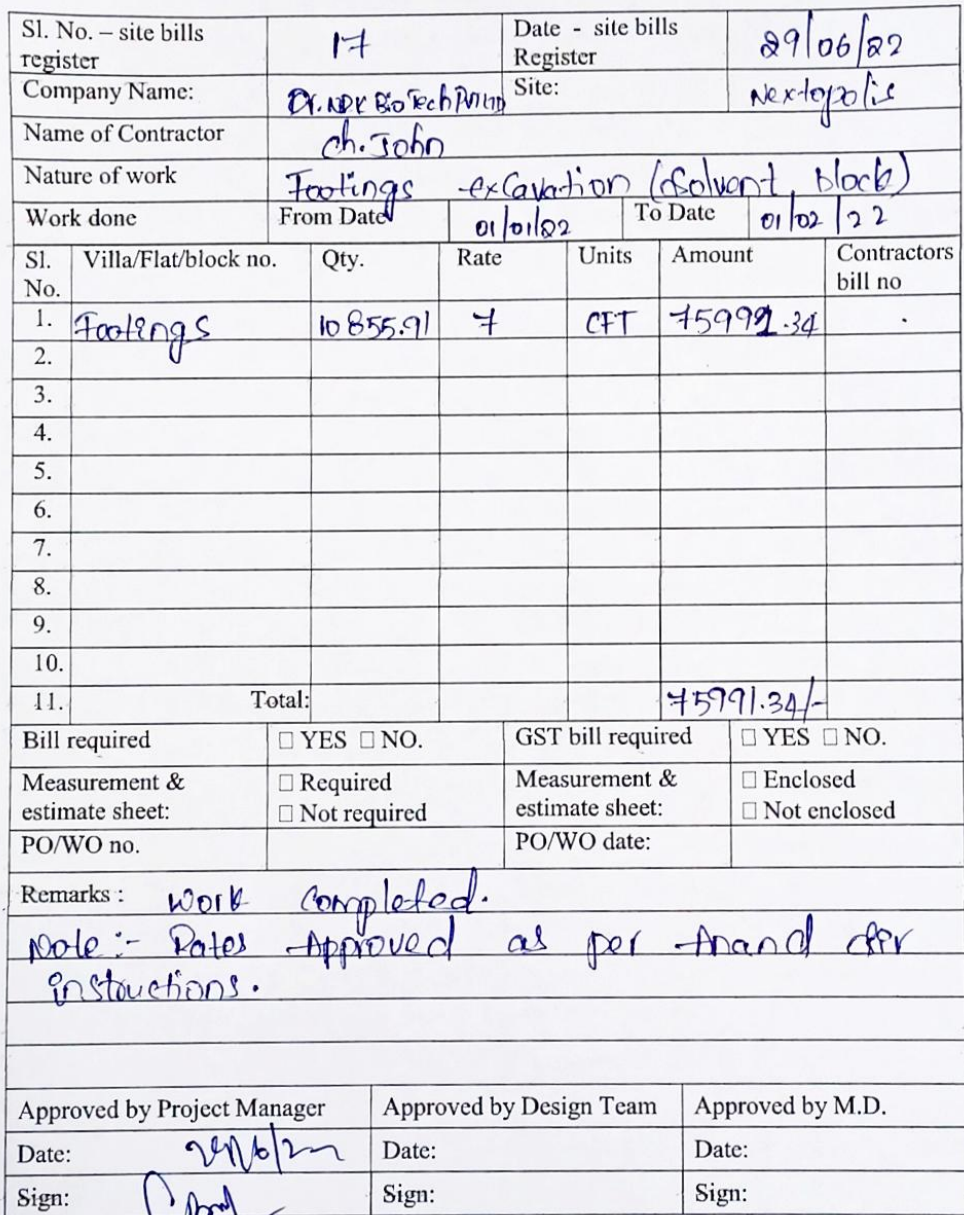 Sl. No. – site bills register 17 Date - site bills Register 29/06/22
Company Name: Dr. NDK BioTech Pvt Ltd Site: Nextopolis
Name of Contractor ch. John
Nature of work Footings excavation (Solvent block)
Work done From Date 01/01/22 To Date 01/02/22
Sl. No. Villa/Flat/block no. Qty. Rate Units Amount Contractors bill no
1. Footings 10855.91 7 CFT 75991.34
2.
3.
4.
5.
6.
7.
8.
9.
10.
11. Total: 75991.34/-
Bill required □ YES □ NO. GST bill required □ YES □ NO.
Measurement & estimate sheet: □ Required □ Not required Measurement & estimate sheet: □ Enclosed □ Not enclosed
PO/WO no. PO/WO date:
Remarks : Work Completed.
Note:- Rates Approved as per Anand
instructions.
Approved by Project Manager Approved by Design Team Approved by M.D.
Date: Date: Date:
Sign: Sign: Sign: